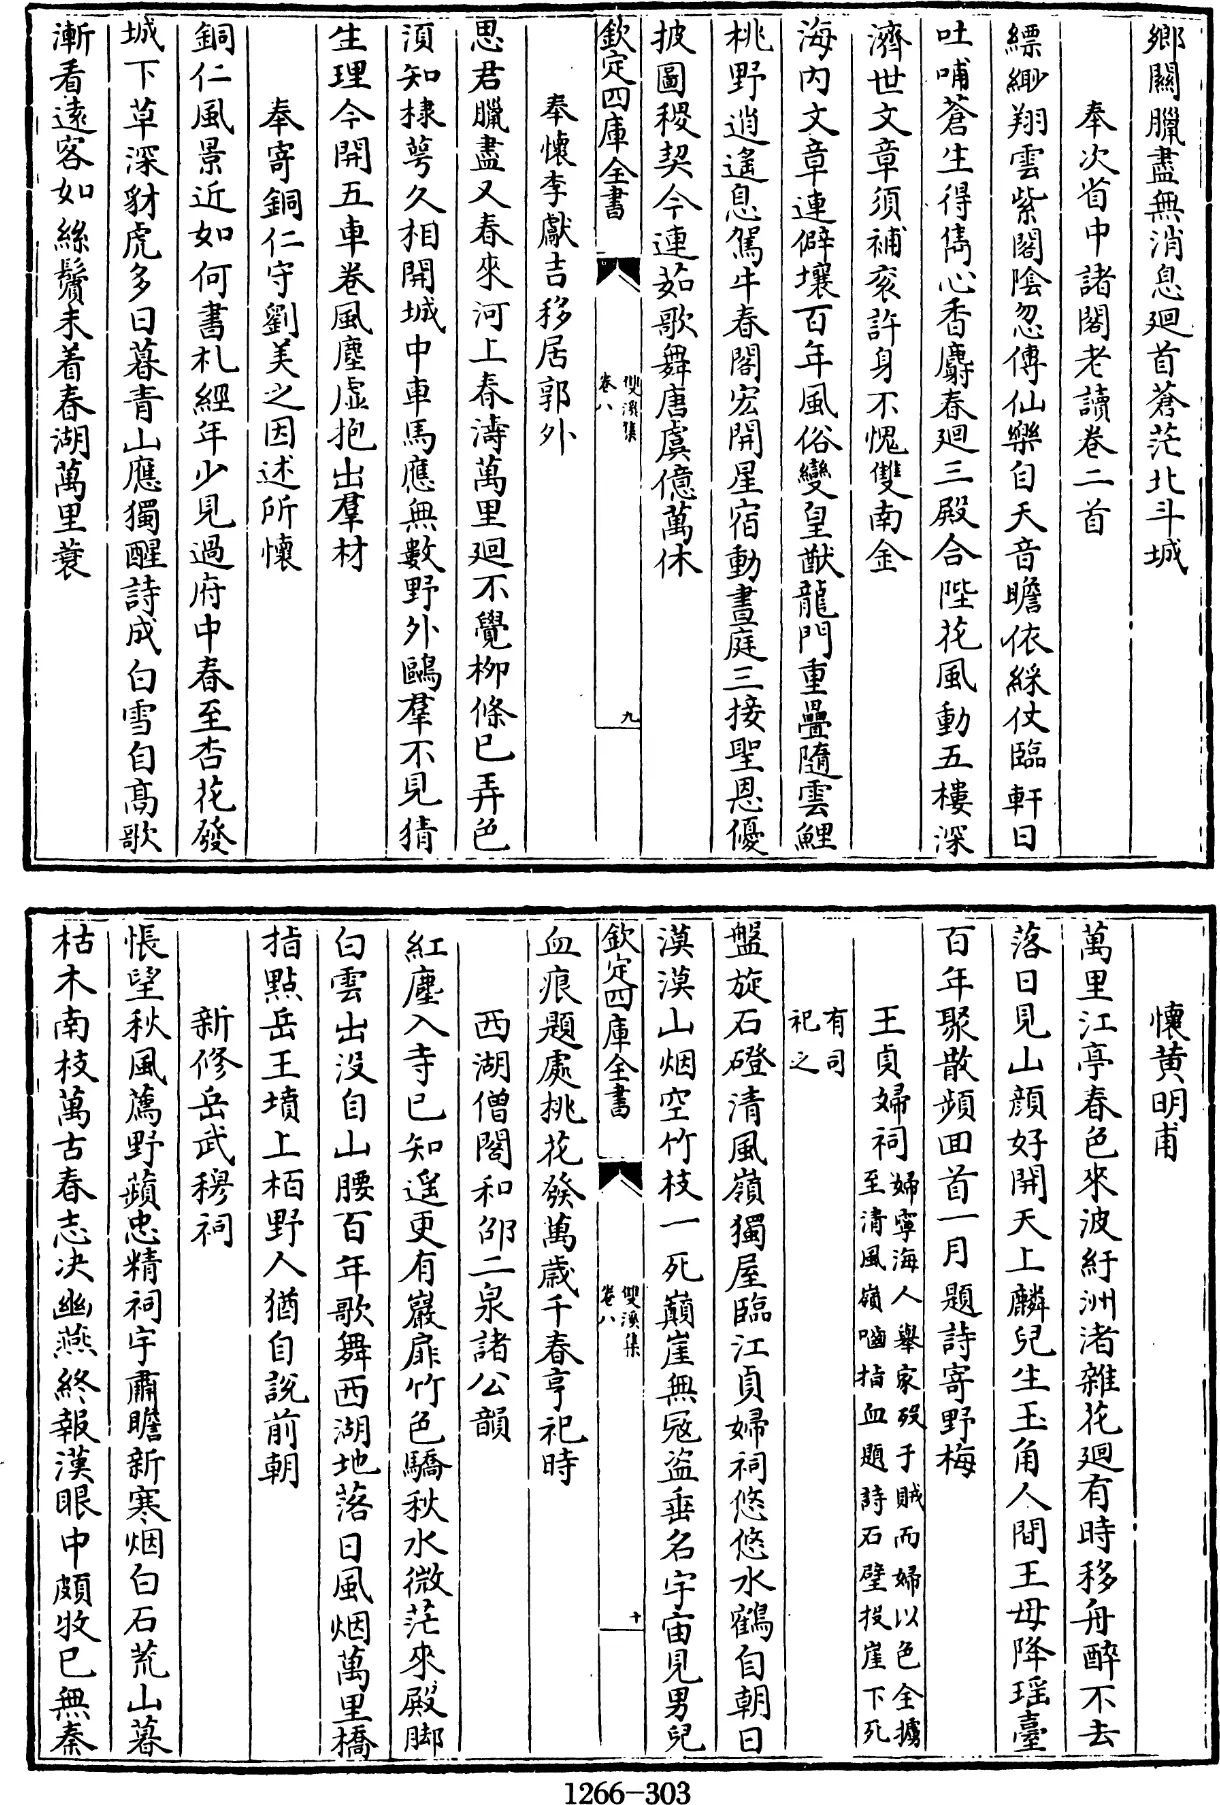 鄉關臘盡無消息廻首蒼茫北斗城
奉次省中諸閣老讀卷二首
縹緲翔雲紫閣陰忽傳仙樂自天音瞻依綵仗臨軒日
吐哺蒼生得雋心香麝春廻三殿合陛花風動五樓深
濟世文章須補衮許身不愧雙南金
海内文章連僻壤百年風俗變皇猷龍門重疊隨雲鯉
桃野逍遙息駕牛春閣宏開星宿動晝庭三接聖恩優
披圖稷契今連茹歌舞唐虞億萬休
欽定四庫全書
雙溪集
卷八
九
奉懷李獻吉移居郭外
思君臘盡又春來河上春濤萬里廻不覺柳條已弄色
須知棣萼久相開城中車馬應無數野外鷗羣不見猜
生理今開五車卷風塵虛抱出羣材
奉寄銅仁守劉美之因述所懷
銅仁風景近如何書札經年少見過府中春至杏花發
城下草深豺虎多日暮青山應獨醒詩成白雪自髙歌
漸看遠客如絲鬢未着春湖萬里蓑
懷黄明甫
萬里江亭春色來波紆洲渚雜花廻有時移舟醉不去
落日見山顔好開天上麟兒生玉角人間王母降瑶臺
百年聚散頻回首一月題詩寄野梅
王貞婦祠婦寧海人舉家歿于賊而婦以色全擄
至清風嶺嚙指血題詩石壁投崖下死
有司
祀之
盤旋石磴清風嶺獨屋臨江貞婦祠悠悠水鶴自朝日
漠漠山烟空竹枝一死巔崖無冦盗垂名宇宙見男兒
欽定四庫全書
雙溪集
卷八
十
血痕題處桃花發萬歲千春亨祀時
西湖僧閣和邵二泉諸公韻
紅塵入寺已知遥更有巖扉竹色驕秋水微茫來殿脚
白雲出没自山腰百年歌舞西湖地落日風烟萬里橋
指點岳王墳上栢野人猶自說前朝
新修岳武穆祠
悵望秋風薦野蘋忠精祠宇肅瞻新寒烟白石荒山暮
枯木南枝萬古春志决幽燕終報漢眼中頗牧已無秦
1266-303